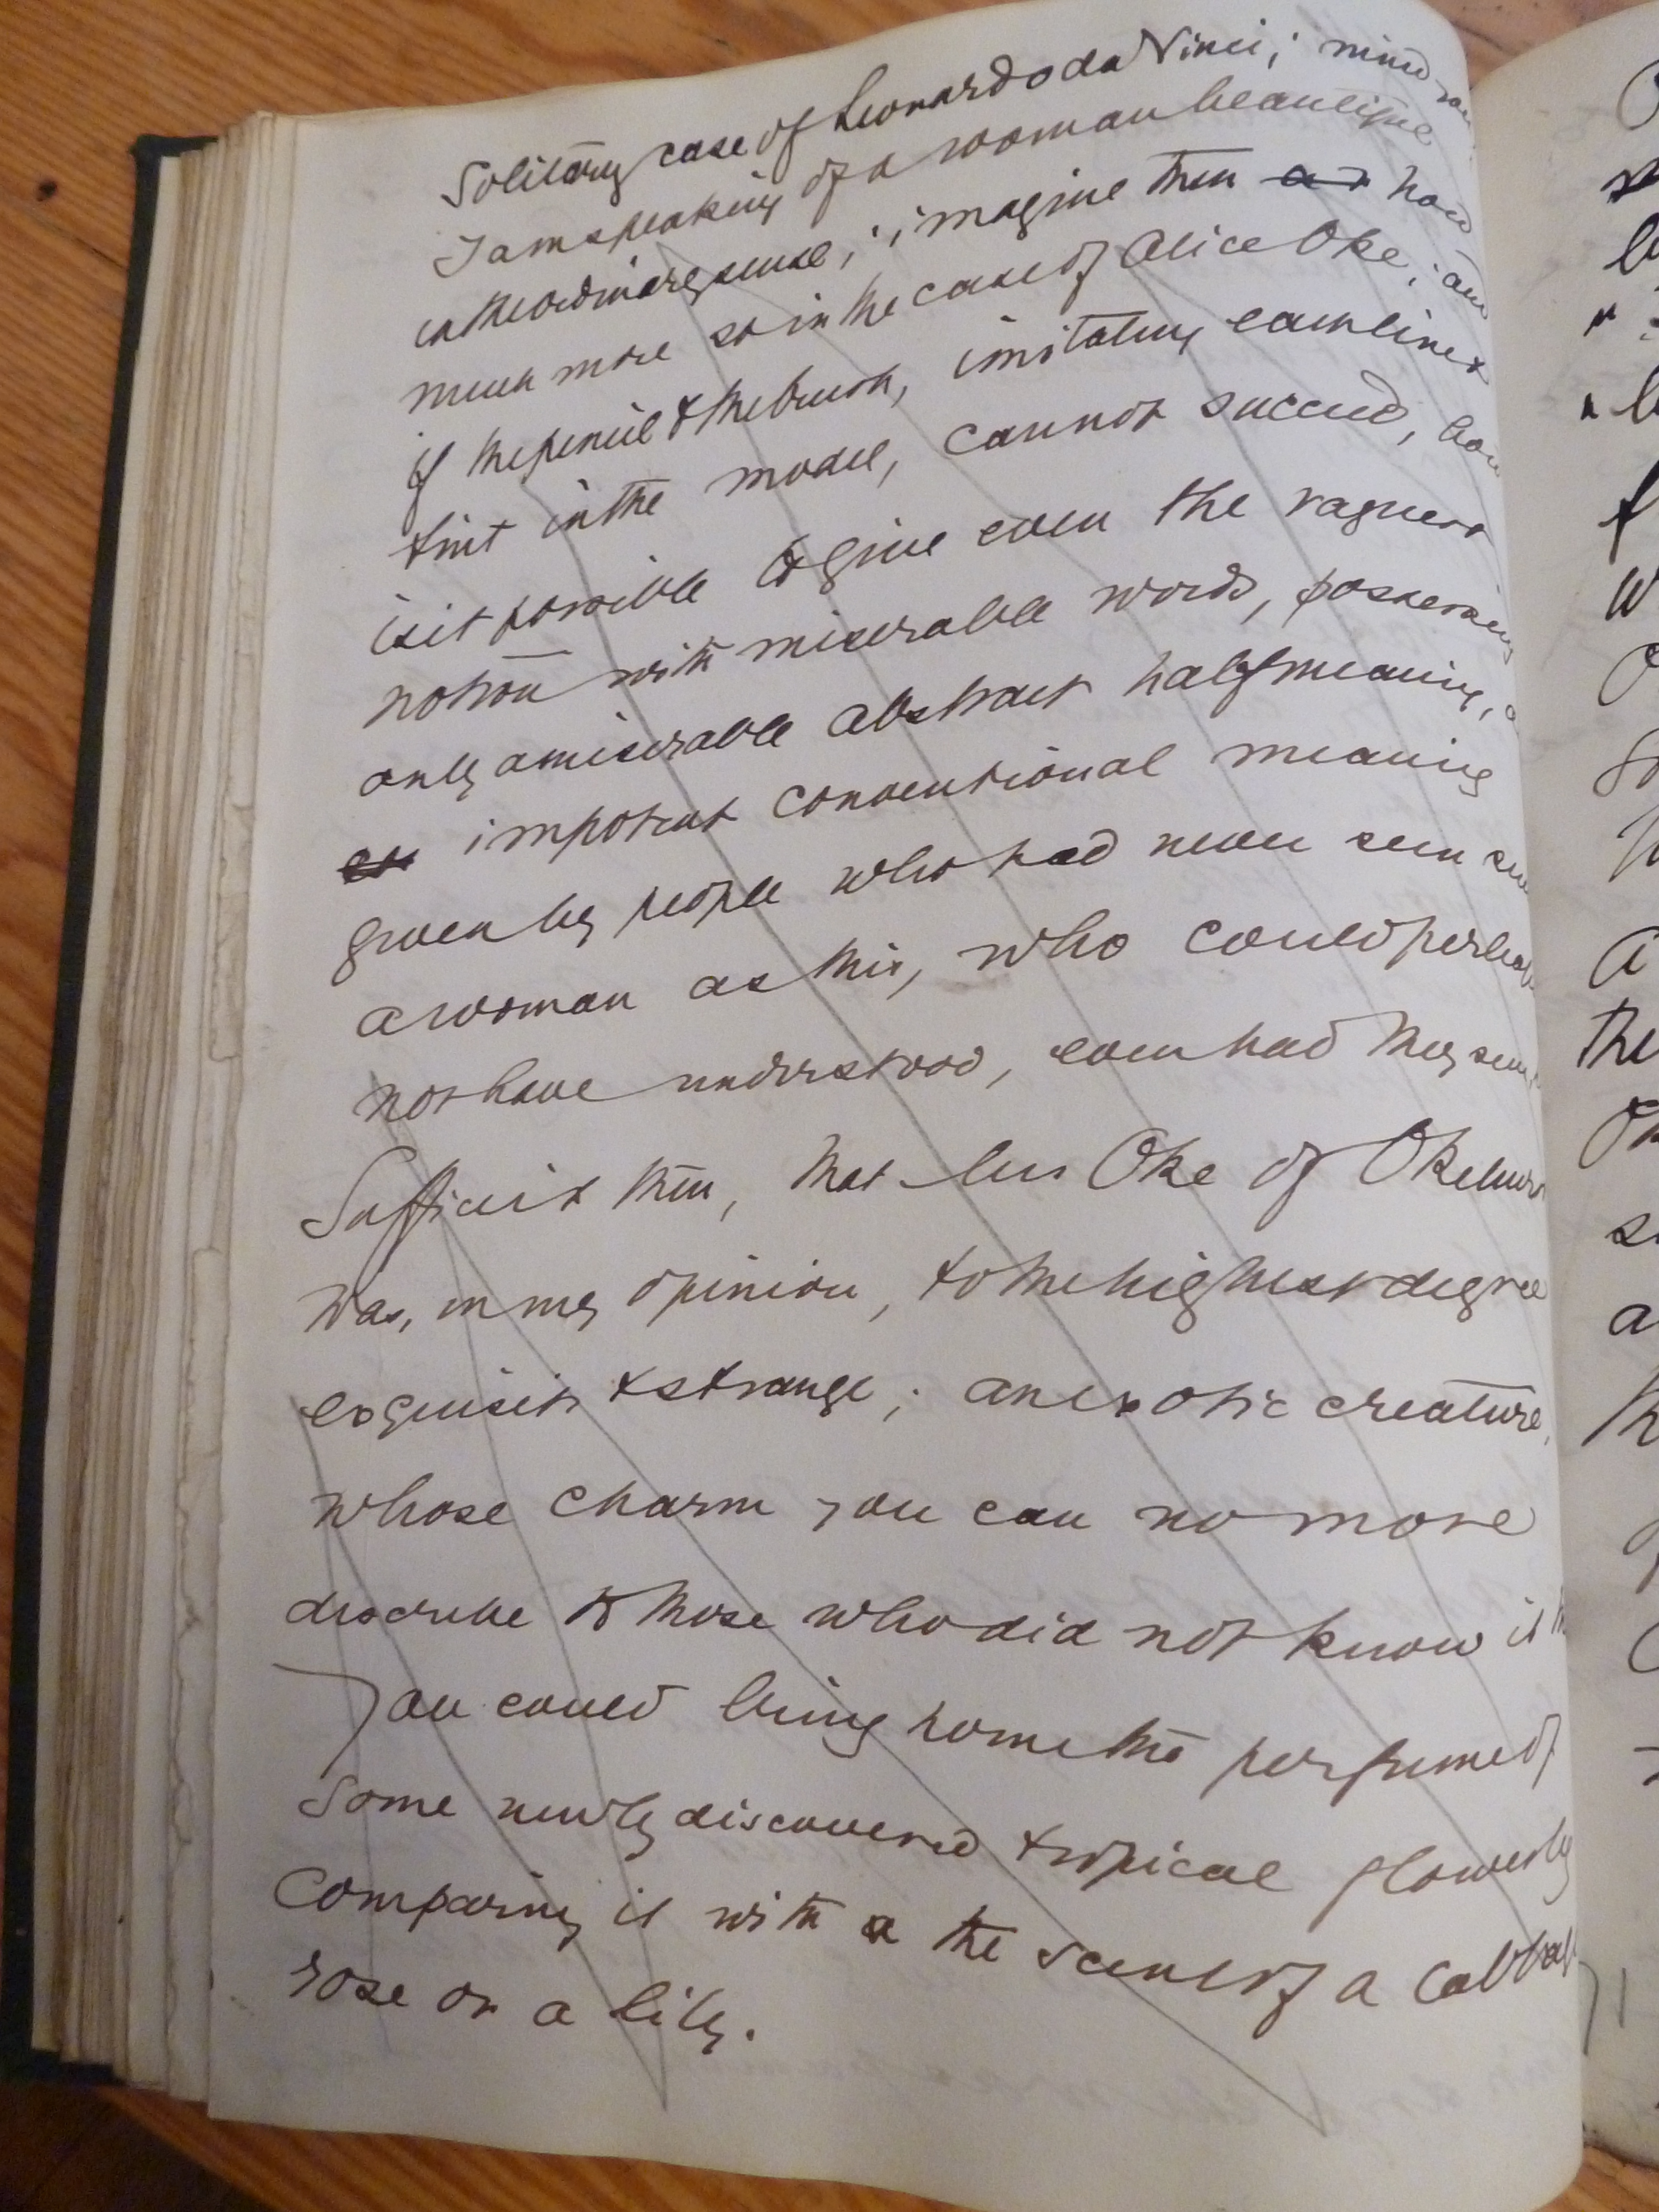 Solitary case of Leonardo da Vinci; mind
I am speaking of a woman beautiful
in the ordinary sense; imagine then how
much more so in the case of Alice Oke; and
if the pencil & the brush, imitating each line &
tint in the model, cannot succeed, how
is it possible to give even the vaguest
notion with miserable words, possessing
only a miserable abstract half meaning,
impotent conventional meaning
given by people who had never seen
a woman as this, who could perhaps
not have understood, even had they seen
Suffice it then, that Oke of Okehurst
was, in my opinion, to the highest degree
exquisite & strange; an exotic creature,
whose charm you can no more
describe to those who did not know it
you could bring home the perfume of
some newly discovered tropical flower by
comparing it with the scent of a cabbage
rose or a lily.
the